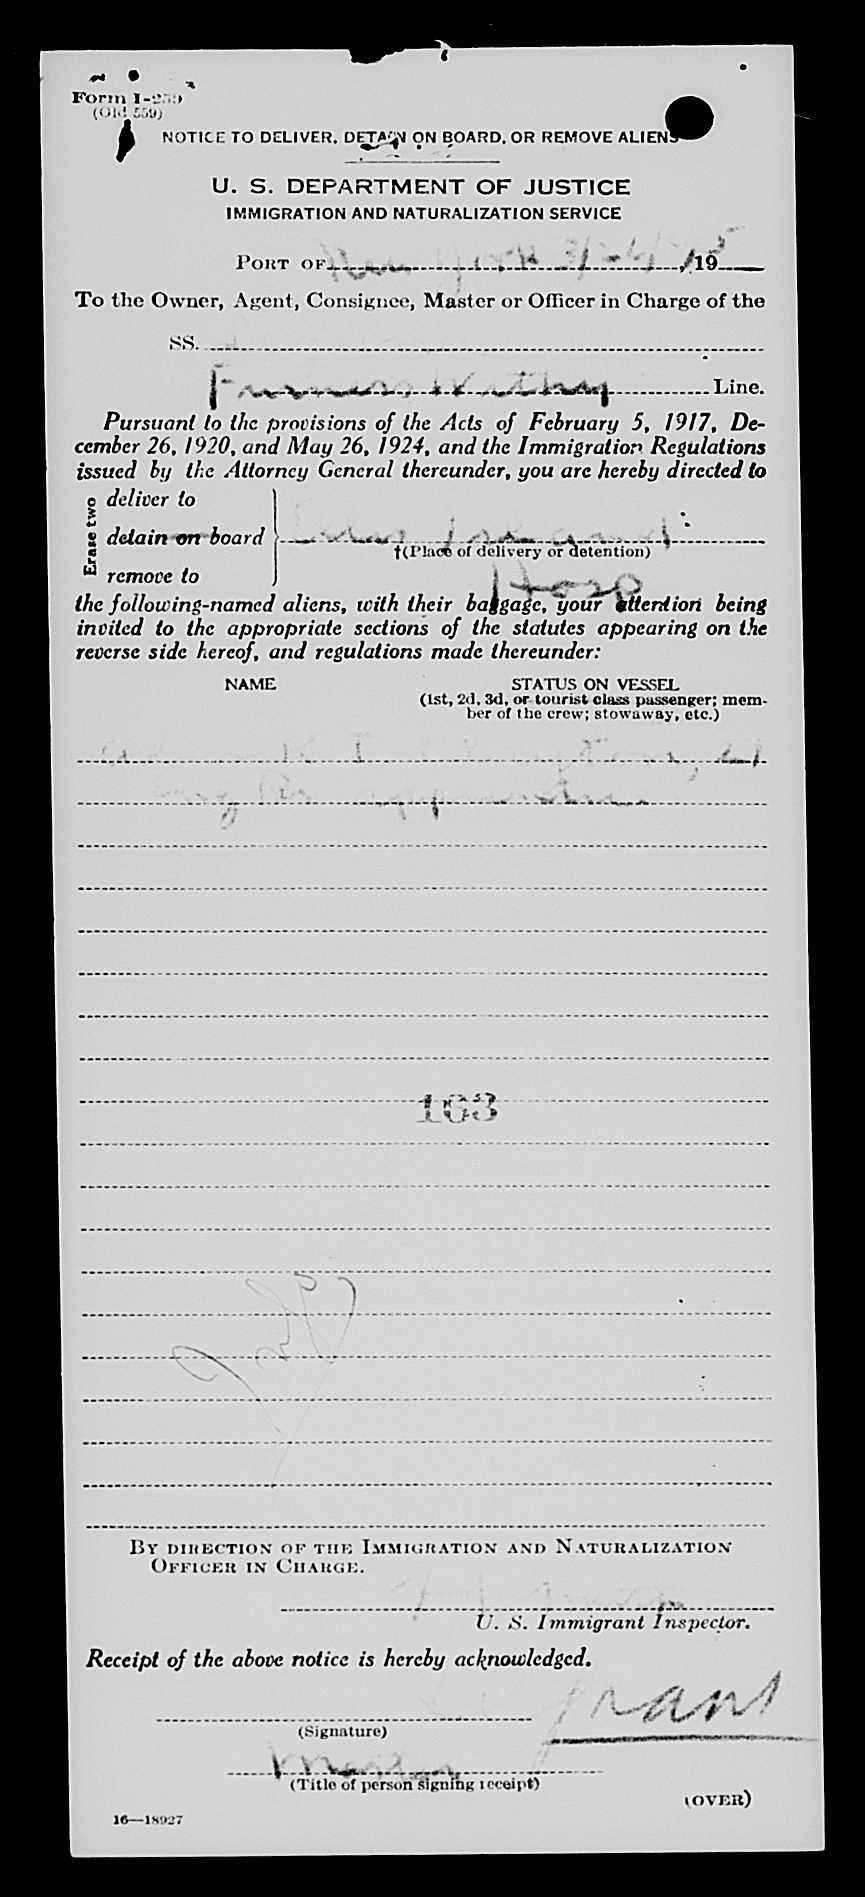 Form I-259
(Old 559)
NOTICE TO DELIVER, DETAIN ON BOARD, OR REMOVE ALIENS
U. S. DEPARTMENT OF JUSTICE
IMMIGRATION AND NATURALIZATION SERVICE
PORT OF New York , 195
To the Owner, Agent, Consignee, Master or Officer in Charge of the
SS.
Furness Withy Line.
Pursuant to the provisions of the Acts of February 5, 1917, De-
cember 26, 1920, and May 26, 1924, and the Immigration Regulations
issued by the Attorney General thereunder, you are hereby directed to
Erase two
deliver to
detain on board Ellis Island
†(Place of delivery or detention)
remove to Hosp
the following-named aliens, with their baggage, your attention being
invited to the appropriate sections of the statutes appearing on the
reverse side hereof, and regulations made thereunder:
NAME STATUS ON VESSEL
(1st, 2d, 3d, or tourist class passenger; mem-
ber of the crew; stowaway, etc.)
163
BY DIRECTION OF THE IMMIGRATION AND NATURALIZATION
OFFICER IN CHARGE.
U. S. Immigrant Inspector.
Receipt of the above notice is hereby acknowledged.
Grant
(Signature)
(Title of person signing receipt)
(OVER)
16—18927